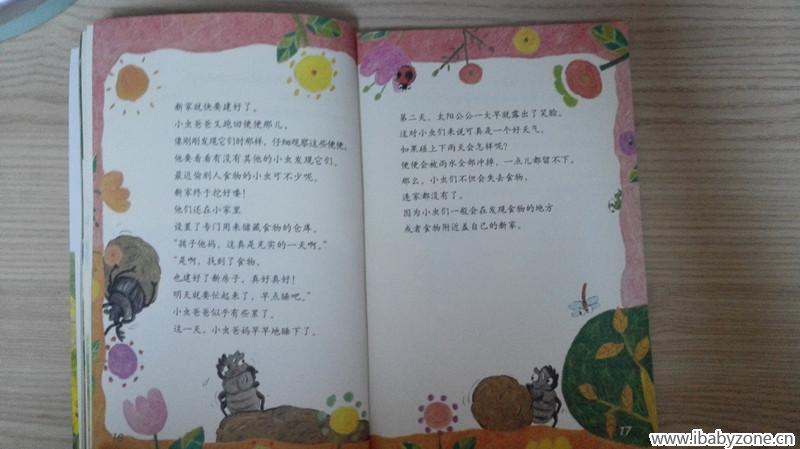 新家就快要建好了。
小虫爸爸又跑回便便那儿，
像刚刚发现它们时那样，仔细观察这些便便。
他要看看有没有其他的小虫发现它们。
最近偷别人食物的小虫可不少呢。
新家终于挖好喽！
他们还在小家里
设置了专门用来储藏食物的仓库。
“孩子他妈，这真是充实的一天啊。”
“是啊，找到了食物，
也建好了新房子，真好真好！
明天就要忙起来了，早点睡吧。”
小虫爸爸似乎有些累了。
这一天，小虫爸妈早早地睡下了。
16
第二天，太阳公公一大早就露出了笑脸。
这对小虫们来说可真是一个好天气。
如果碰上下雨天会怎样呢？
便便会被雨水全部冲掉，一点儿都留不下。
那么，小虫们不但会失去食物，
连家都没有了。
因为小虫们一般会在发现食物的地方
或者食物附近盖自己的新家。
17
www.ibabyzone.cn